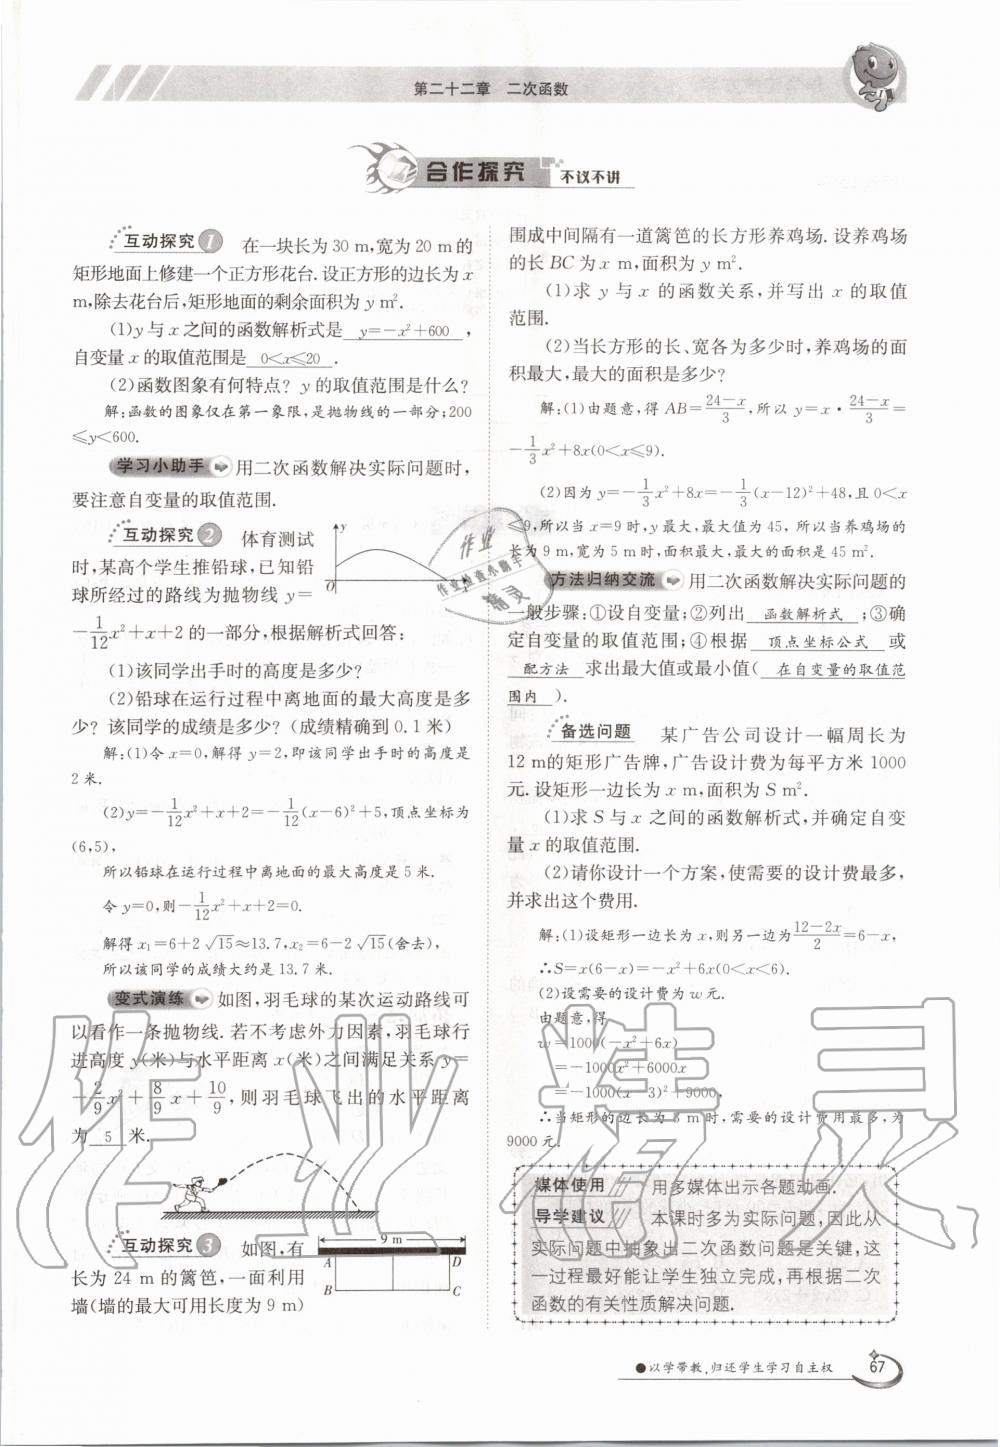 第二十二章 二次函数
合作探究 不议不讲
互动探究1 在一块长为30 m,宽为20 m的
矩形地面上修建一个正方形花台.设正方形的边长为x
m,除去花台后,矩形地面的剩余面积为y m².
(1)y与x之间的函数解析式是 y=-x²+600 ,
自变量x的取值范围是 0<x≤20 .
(2)函数图象有何特点? y的取值范围是什么?
解:函数的图象仅在第一象限,是抛物线的一部分;200
≤y<600.
学习小助手 用二次函数解决实际问题时,
要注意自变量的取值范围.
互动探究2 体育测试
时,某高个学生推铅球,已知铅
球所经过的路线为抛物线y=
-1/12x²+x+2的一部分,根据解析式回答:
y
O
(1)该同学出手时的高度是多少?
(2)铅球在运行过程中离地面的最大高度是多
少? 该同学的成绩是多少? (成绩精确到0.1米)
解:(1)令x=0,解得y=2,即该同学出手时的高度是
2米.
(2)y=-1/12x²+x+2=-1/12(x-6)²+5,顶点坐标为
(6,5),
所以铅球在运行过程中离地面的最大高度是5米.
令y=0,则-1/12x²+x+2=0.
解得x₁=6+2√15≈13.7,x₂=6-2√15(舍去),
所以该同学的成绩大约是13.7米.
变式演练 如图,羽毛球的某次运动路线可
以看作一条抛物线.若不考虑外力因素,羽毛球行
进高度y(米)与水平距离x(米)之间满足关系y=
-2/9x²+8/9x+10/9,则羽毛球飞出的水平距离
为 5 米.
互动探究3 如图,有
长为24 m的篱笆,一面利用
墙(墙的最大可用长度为9 m)
9 m
A D
B C
围成中间隔有一道篱笆的长方形养鸡场.设养鸡场
的长BC为x m,面积为y m².
(1)求y与x的函数关系,并写出x的取值
范围.
(2)当长方形的长、宽各为多少时,养鸡场的面
积最大,最大的面积是多少?
解:(1)由题意,得AB=24-x/3,所以y=x·24-x/3=
-1/3x²+8x(0<x≤9).
(2)因为y=-1/3x²+8x=-1/3(x-12)²+48,且0<x
≤9,所以当x=9时,y最大,最大值为45,所以当养鸡场的
长为9 m,宽为5 m时,面积最大,最大的面积是45 m².
方法归纳交流 用二次函数解决实际问题的
一般步骤:①设自变量;②列出 函数解析式 ;③确
定自变量的取值范围;④根据 顶点坐标公式 或
配方法 求出最大值或最小值( 在自变量的取值范
围内 ).
备选问题 某广告公司设计一幅周长为
12 m的矩形广告牌,广告设计费为每平方米1000
元.设矩形一边长为x m,面积为S m².
(1)求S与x之间的函数解析式,并确定自变
量x的取值范围.
(2)请你设计一个方案,使需要的设计费最多,
并求出这个费用.
解:(1)设矩形一边长为x,则另一边为12-2x/2=6-x,
∴S=x(6-x)=-x²+6x(0<x<6).
(2)设需要的设计费为w元.
由题意,得
w=1000(-x²+6x)
=-1000x²+6000x
=-1000(x-3)²+9000,
∴当矩形的边长为3 m时,需要的设计费用最多,为
9000元.
媒体使用 用多媒体出示各题动画.
导学建议 本课时多为实际问题,因此从
实际问题中抽象出二次函数问题是关键,这
一过程最好能让学生独立完成,再根据二次
函数的有关性质解决问题.
●以学带教,归还学生学习自主权 67
作业精灵
作业
作业检查小助手
精灵